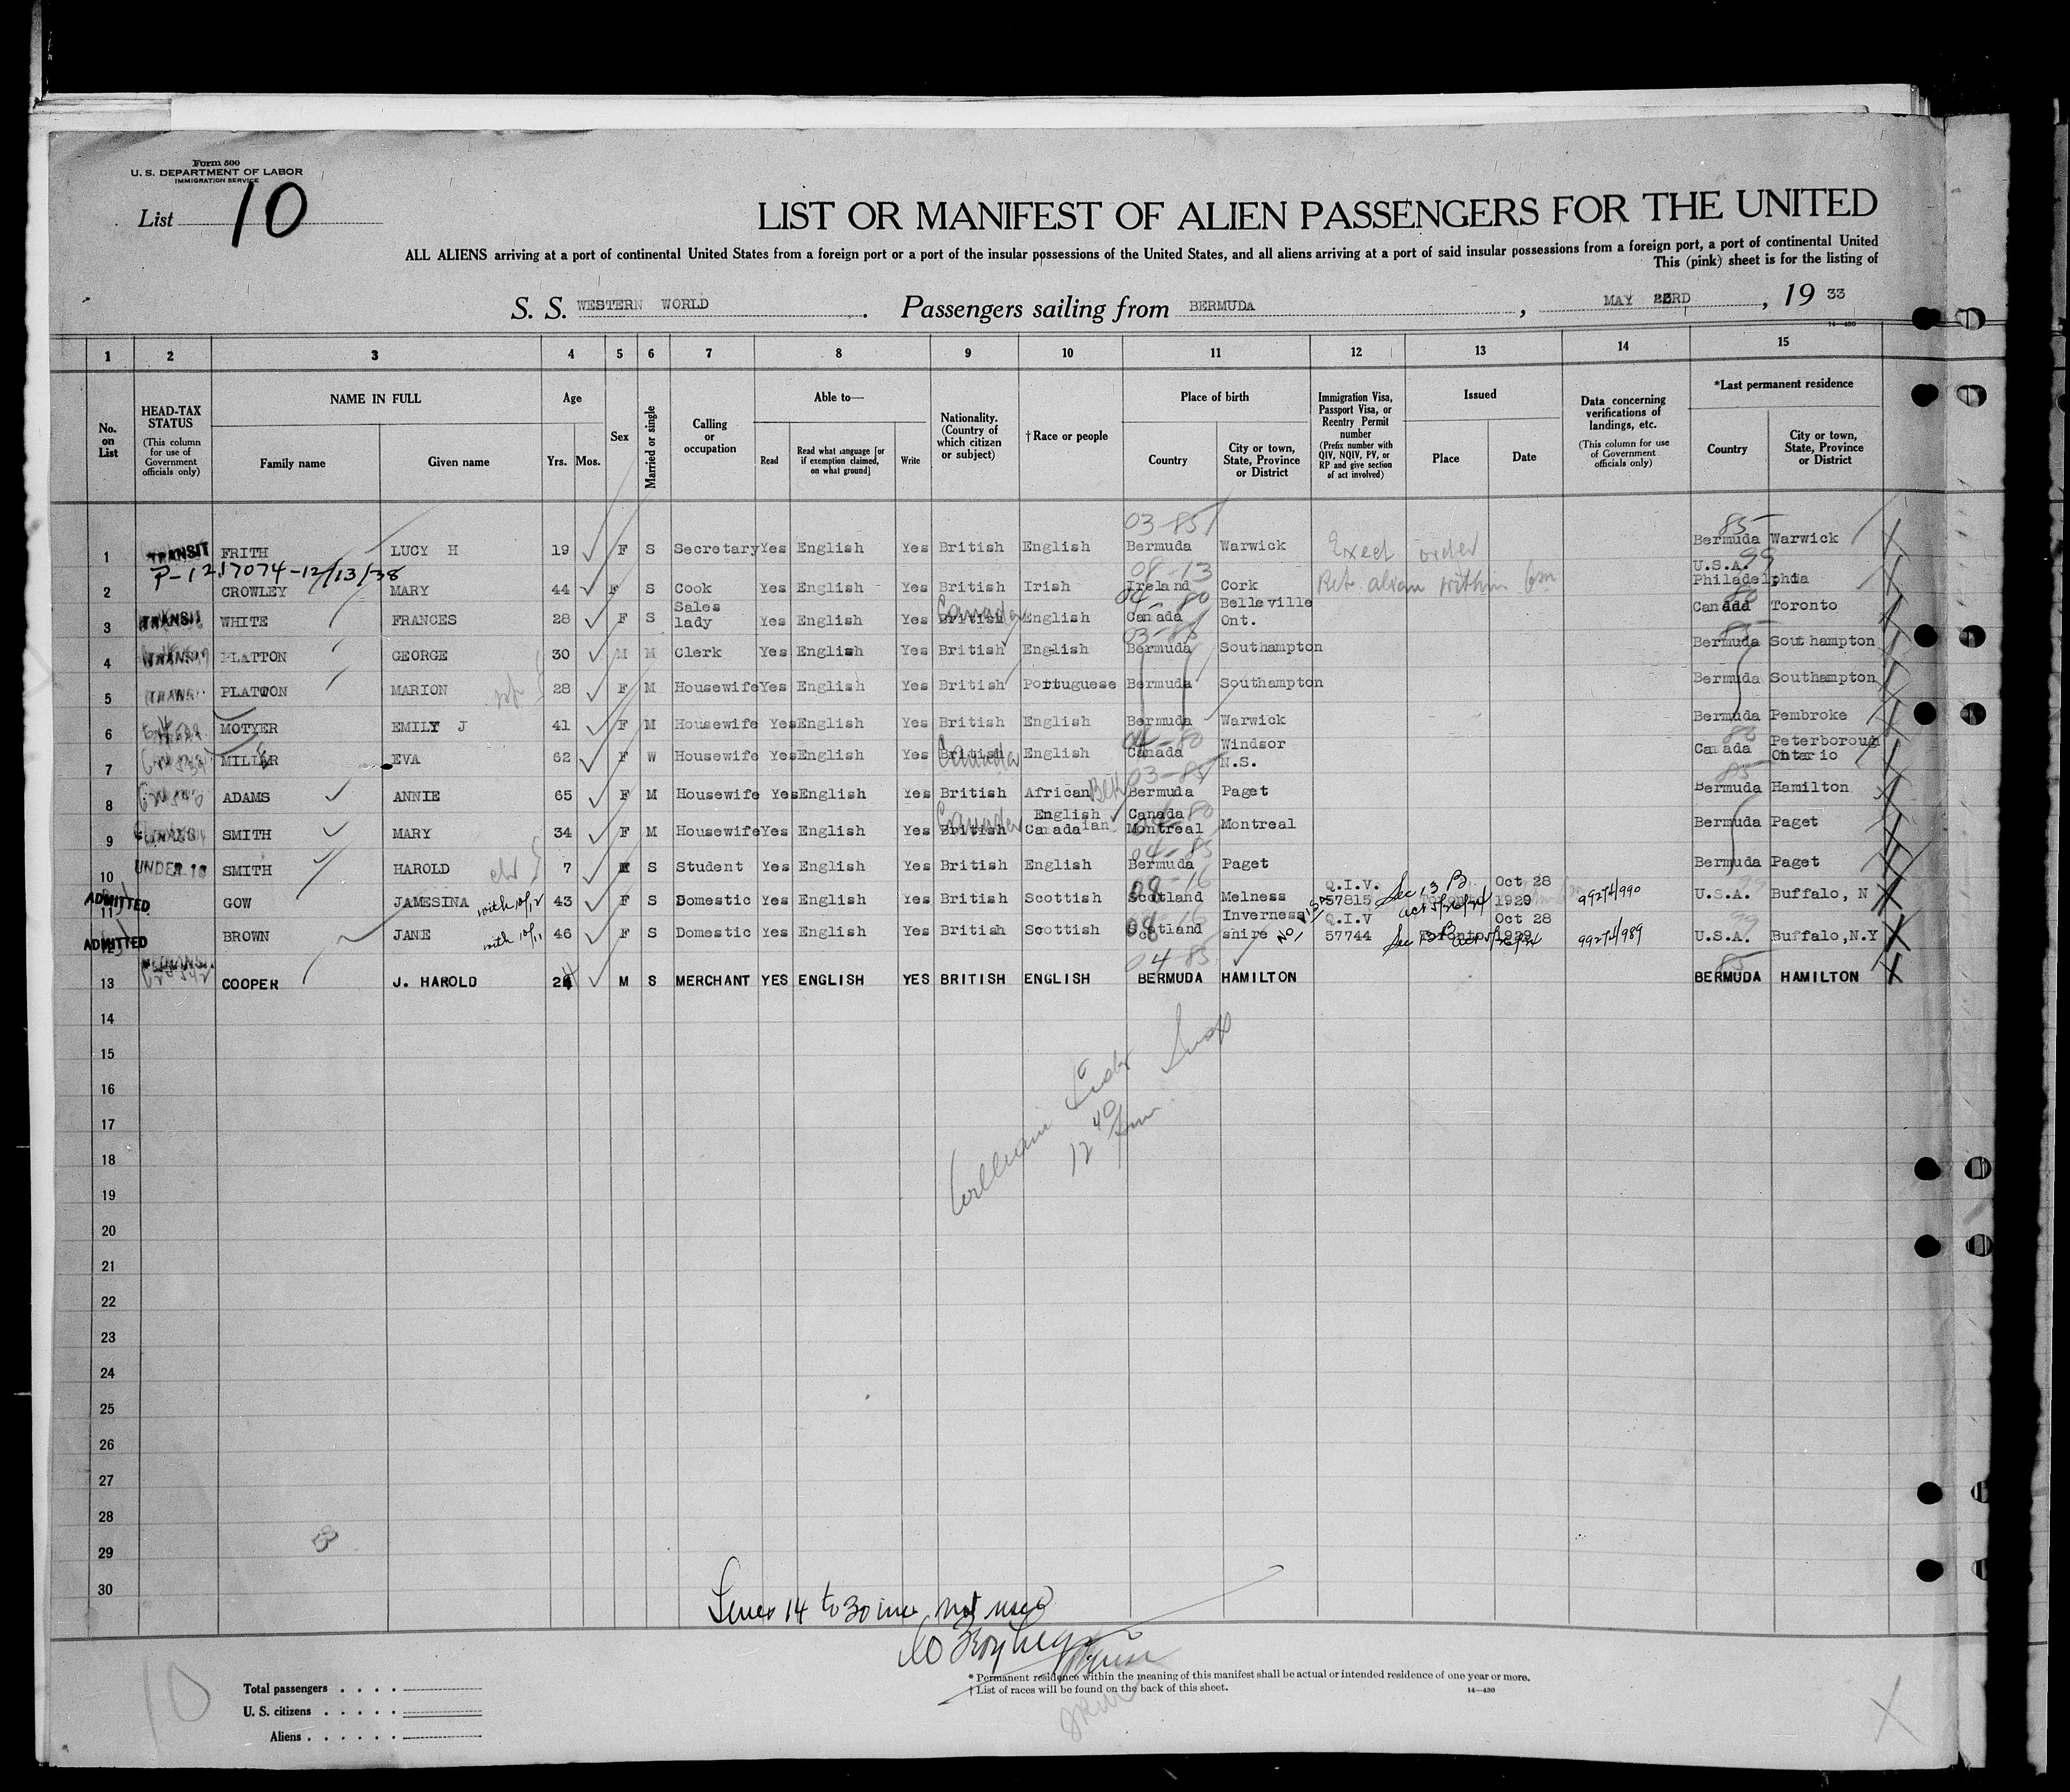 Form 500
U. S. DEPARTMENT OF LABOR
IMMIGRATION SERVICE
List 10
LIST OR MANIFEST OF ALIEN PASSENGERS FOR THE UNITED
ALL ALIENS arriving at a port of continental United States from a foreign port or a port of the insular possessions of the United States, and all aliens arriving at a port of said insular possessions from a foreign port, a port of continental United
This (pink) sheet is for the listing of
S. S. WESTERN WORLD. Passengers sailing from BERMUDA, MAY 23RD, 19 33
14—430
1 2 3 4 5 6 7 8 9 10 11 12 13 14 15
No. on List
HEAD-TAX STATUS (This column for use of Government officials only)
NAME IN FULL Family name Given name
Age Yrs. Mos.
Sex
Married or single
Calling or occupation
Able to— Read Read what language [or if exemption claimed, on what ground] Write
Nationality. (Country of which citizen or subject)
†Race or people
Place of birth Country City or town, State, Province or District
Immigration Visa, Passport Visa, or Reentry Permit number (Prefix number with QIV, NQIV, PV, or RP and give section of act involved)
Issued Place Date
Data concerning verifications of landings, etc. (This column for use of Government officials only)
*Last permanent residence Country City or town, State, Province or District
03-85 85
1 TRANSIT FRITH LUCY H 19 F S Secretary Yes English Yes British English Bermuda Warwick Exect order Bermuda Warwick
P-1217074-12/13/38 08-13 99
2 CROWLEY MARY 44 F S Cook Yes English Yes British Irish Ireland Cork Ret alien within 6m U.S.A. Philadelphia
04-80 80
3 TRANSIT WHITE FRANCES 28 F S Sales lady Yes English Yes British Canada English Canada Belleville Ont. Canada Toronto
03-85 85
4 TRANSIT PLATTON GEORGE 30 M M Clerk Yes English Yes British English Bermuda Southampton Bermuda Southampton
5 TRANSIT PLATTON MARION 28 F M Housewife Yes English Yes British Portuguese Bermuda Southampton Bermuda Southampton
6 MOTYER EMILY J 41 F M Housewife Yes English Yes British English Bermuda Warwick Bermuda Pembroke
04-80 80
7 MILLER EVA 62 F W Housewife Yes English Yes British Canada English Canada Windsor N.S. Canada Peterborough Ontario
03-85 85
8 ADAMS ANNIE 65 F M Housewife Yes English Yes British African Blk Bermuda Paget Bermuda Hamilton
9 SMITH MARY 34 F M Housewife Yes English Yes British Canada English Canadaian Canada Montreal Montreal Bermuda Paget
04-85
10 UNDER 16 SMITH HAROLD 7 M S Student Yes English Yes British English Bermuda Paget Bermuda Paget
08-16 99
11 ADMITTED GOW JAMESINA with 10/12 43 F S Domestic Yes English Yes British Scottish Scotland Melness Q.I.V. 57815 Sec 13 B act 5/26/24 Oct 28 1929 99274/990 U.S.A. Buffalo, N
08-16 99
12 ADMITTED BROWN JANE with 10/11 46 F S Domestic Yes English Yes British Scottish Scotland Inverness shire Q.I.V 57744 Toronto Sec 13 B act 5/26/24 Oct 28 1929 99274/989 U.S.A. Buffalo,N.Y
04-85 85
13 COOPER J. HAROLD 24 M S MERCHANT YES ENGLISH YES BRITISH ENGLISH BERMUDA HAMILTON BERMUDA HAMILTON
14
15
16
17
18
19
20
21
22
23
24
25
26
27
28
29
30
William
12 40 pm
Lines 14 to 30 inc not used
* Permanent residence within the meaning of this manifest shall be actual or intended residence of one year or more.
† List of races will be found on the back of this sheet.
14—430
10
Total passengers . . . .
U. S. citizens . . . . .
Aliens . . . . . .